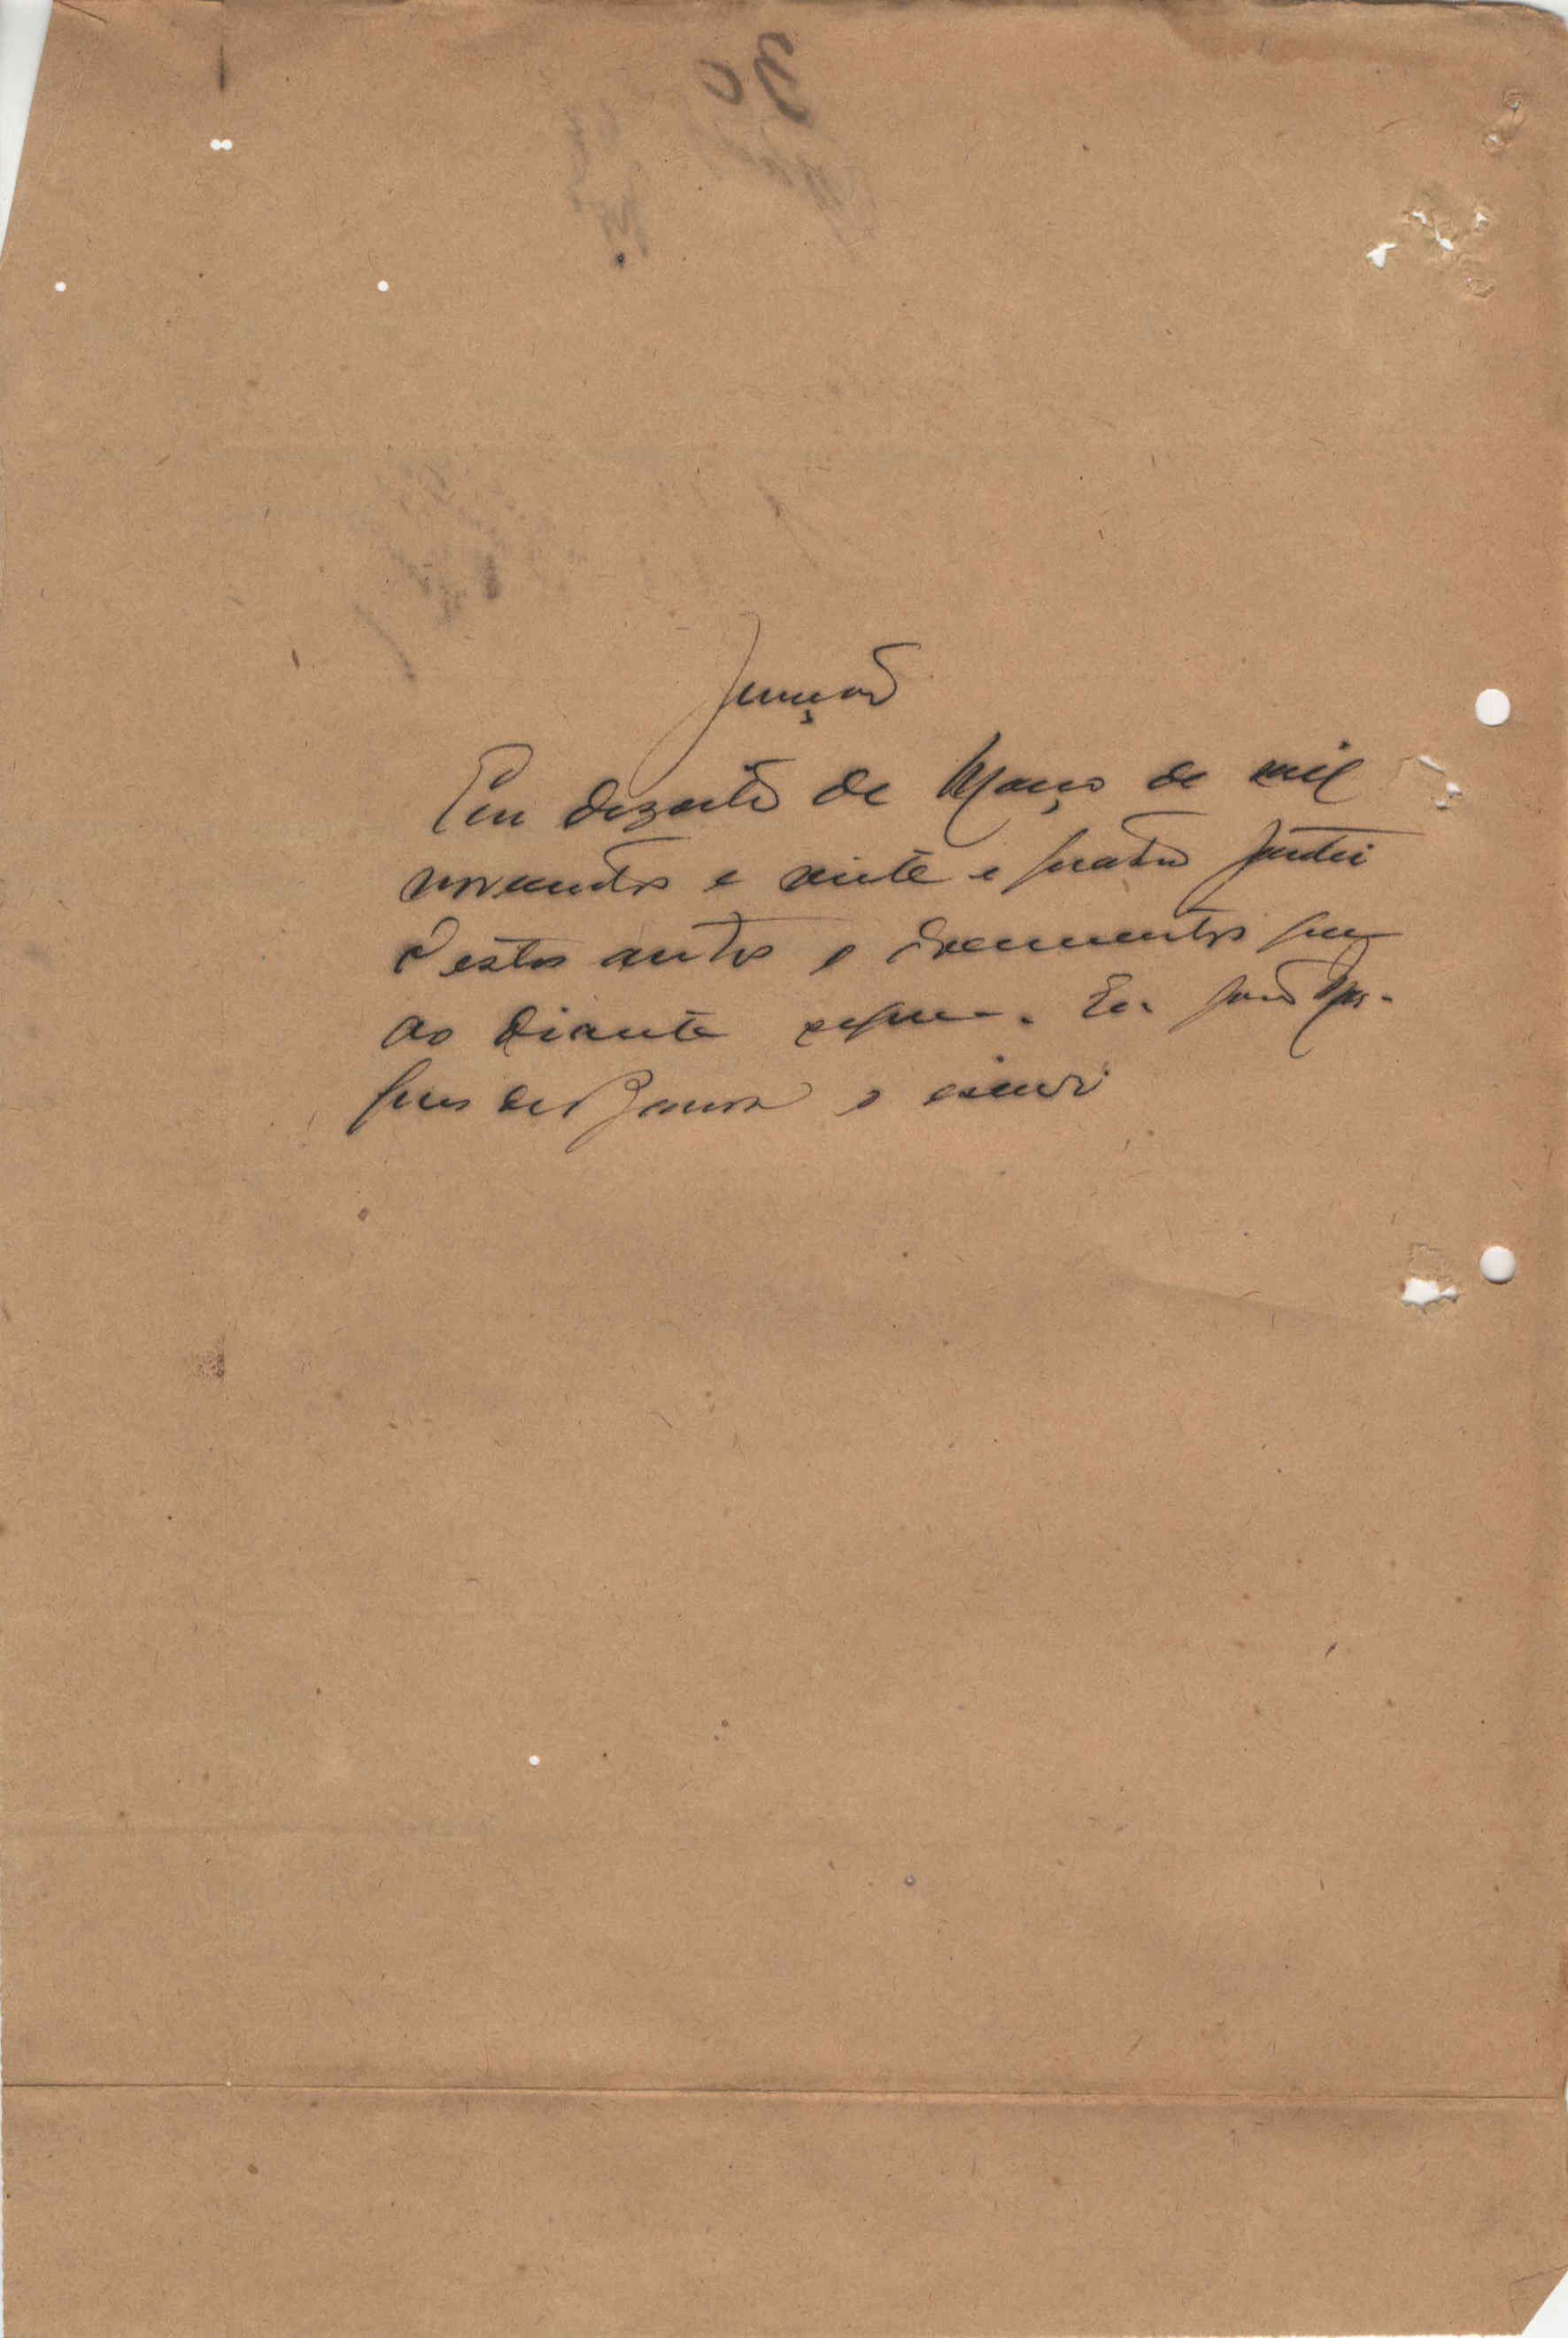 Junção
Em dezoito de Março de mil
novecentos e vinte e quatro juntei
a estes autos o documento que
ao diante segue. Eu, João
de o escrevi